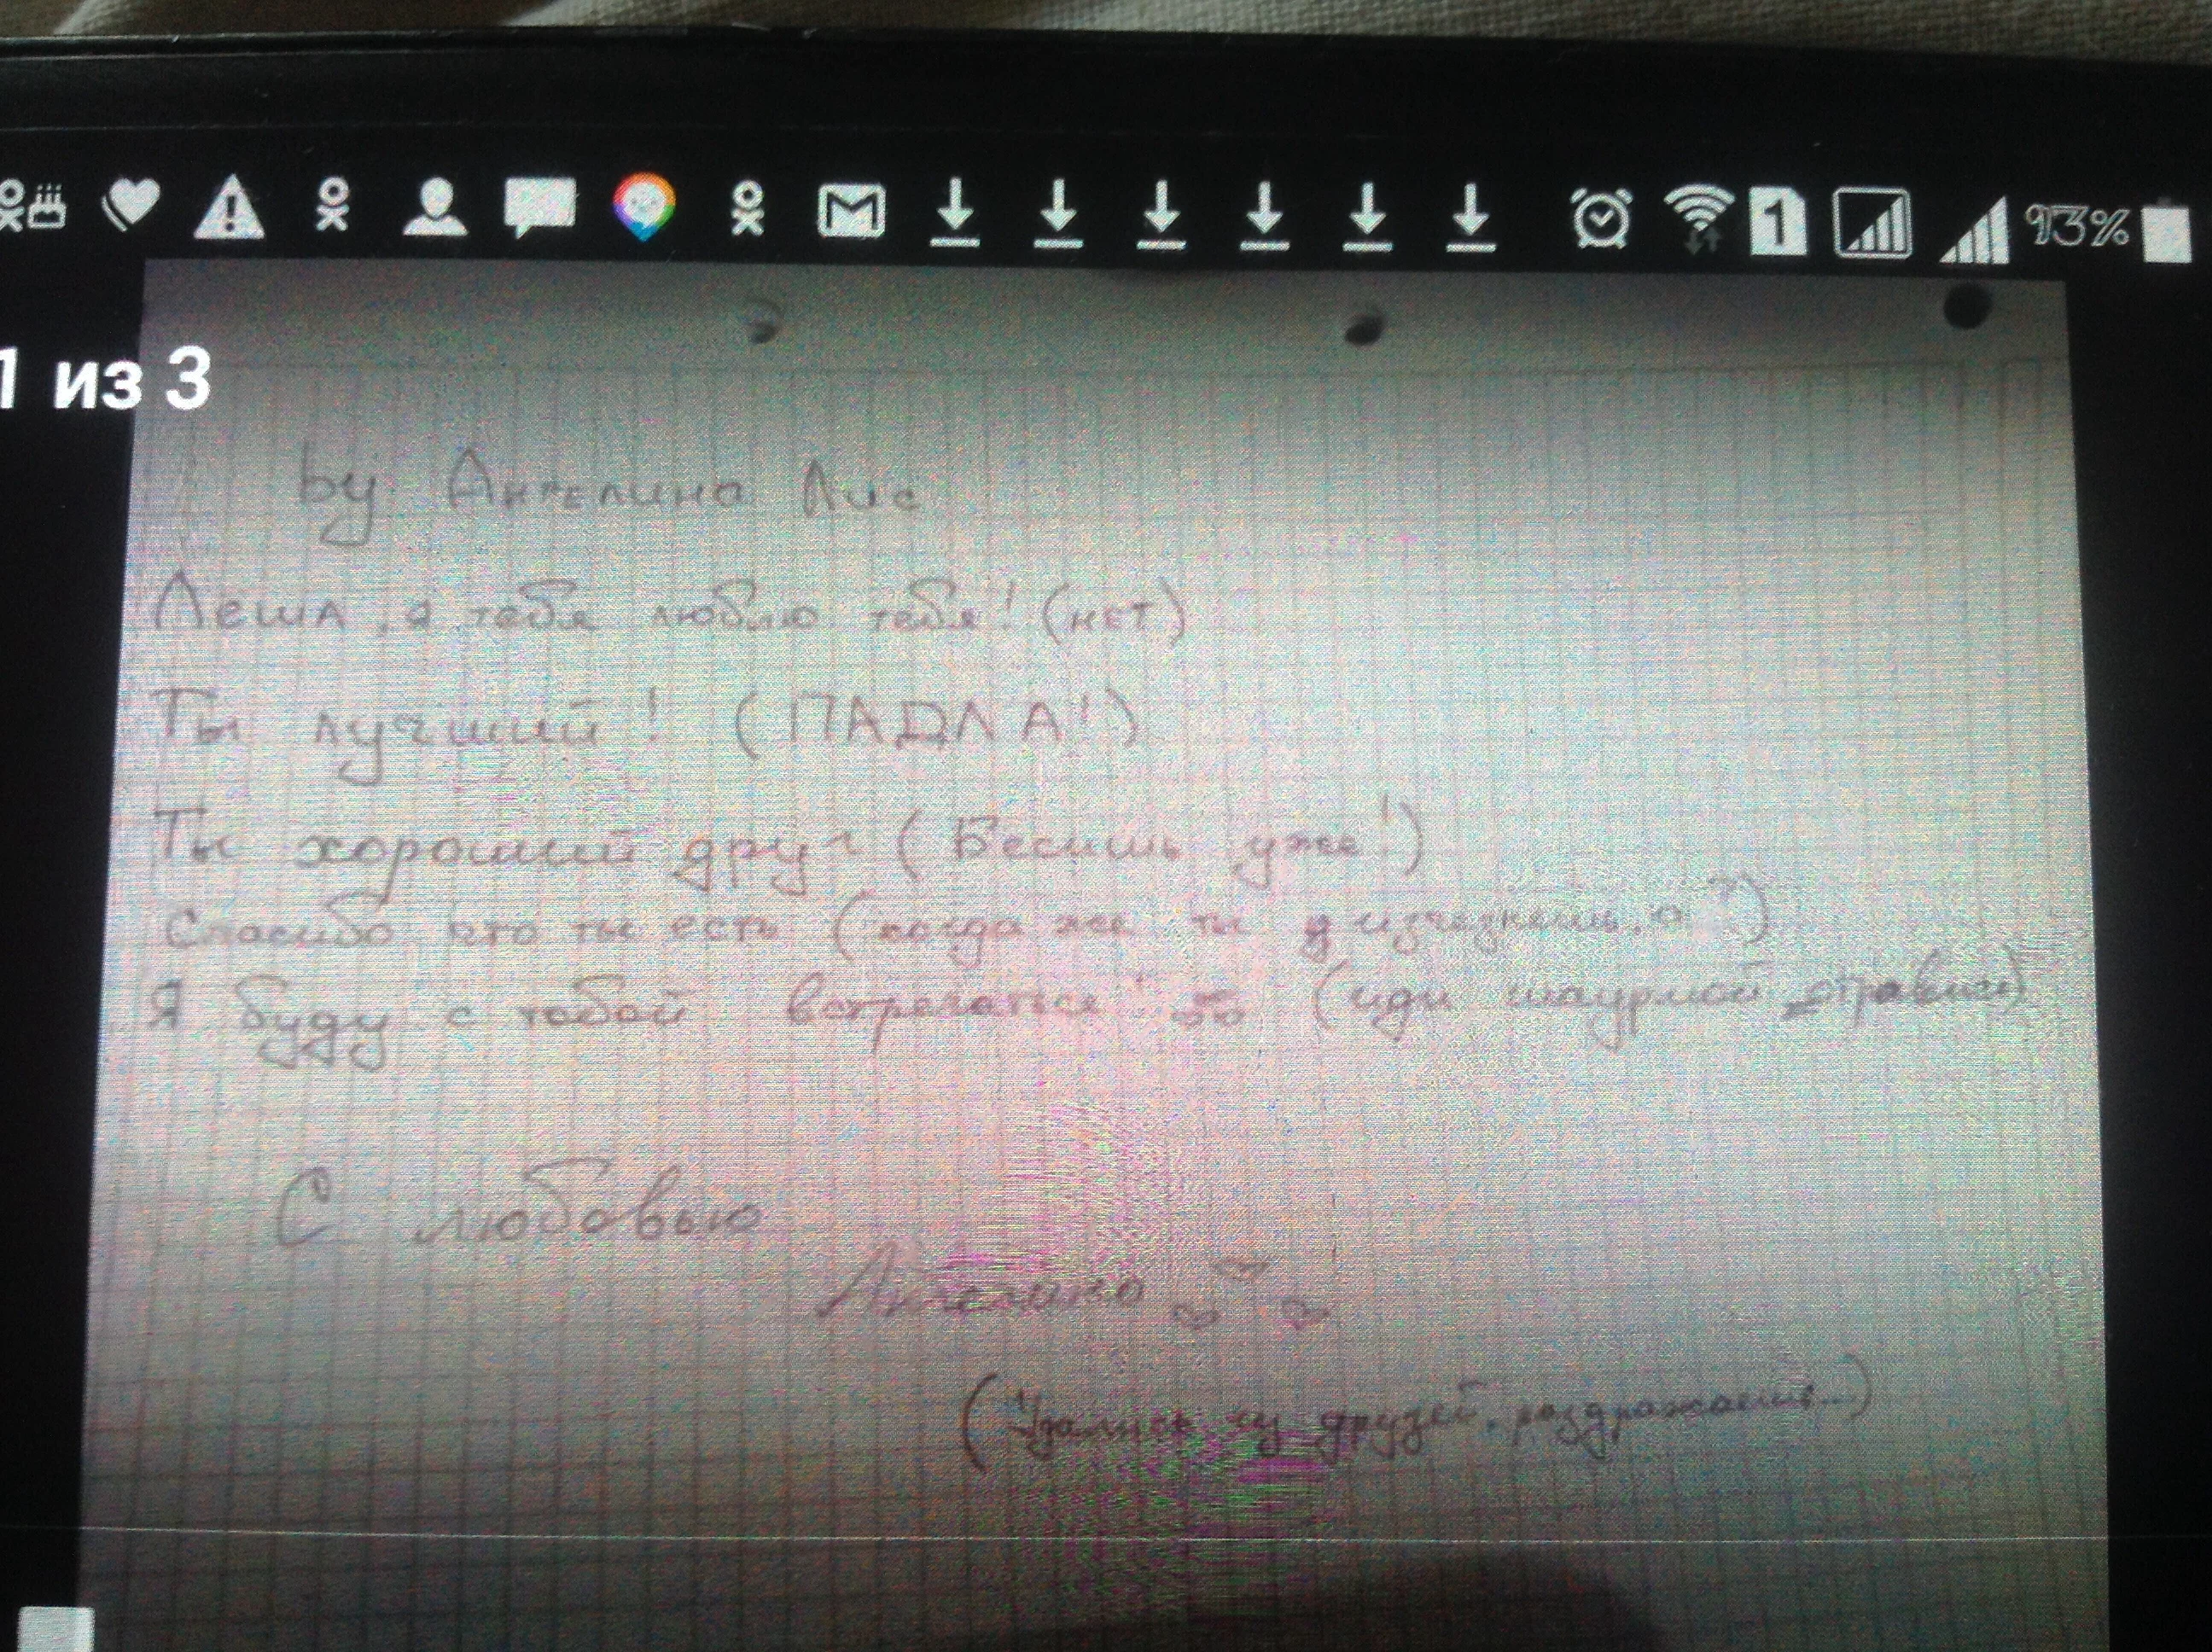 93%
1 из 3
by Ангелина Лис
Леша, я тебя люблю тебя! (нет)
Ты лучший! (ПАДЛА!)
Ты хороший друг (Бесишь уже!)
Спасибо что ты есть (когда же ты изчезнешь, а?)
Я буду с тобой встречаться (иди шаурмой отравись)
С любовью
Ангелина
(Удались из друзей, раздражаешь...)